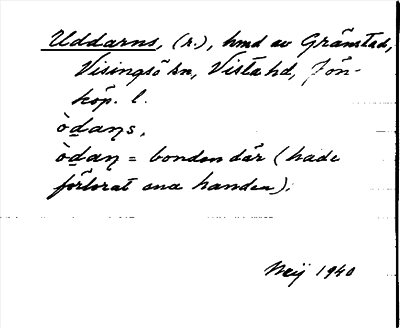 Uddarns, (r.), hmd av Gränstad,
Visingsö sn, Vista hd, Jön-
köp. l.
òdaṇs,
òdaṇ = bonden där (hade
förlorat ena handen).
Meij 1940